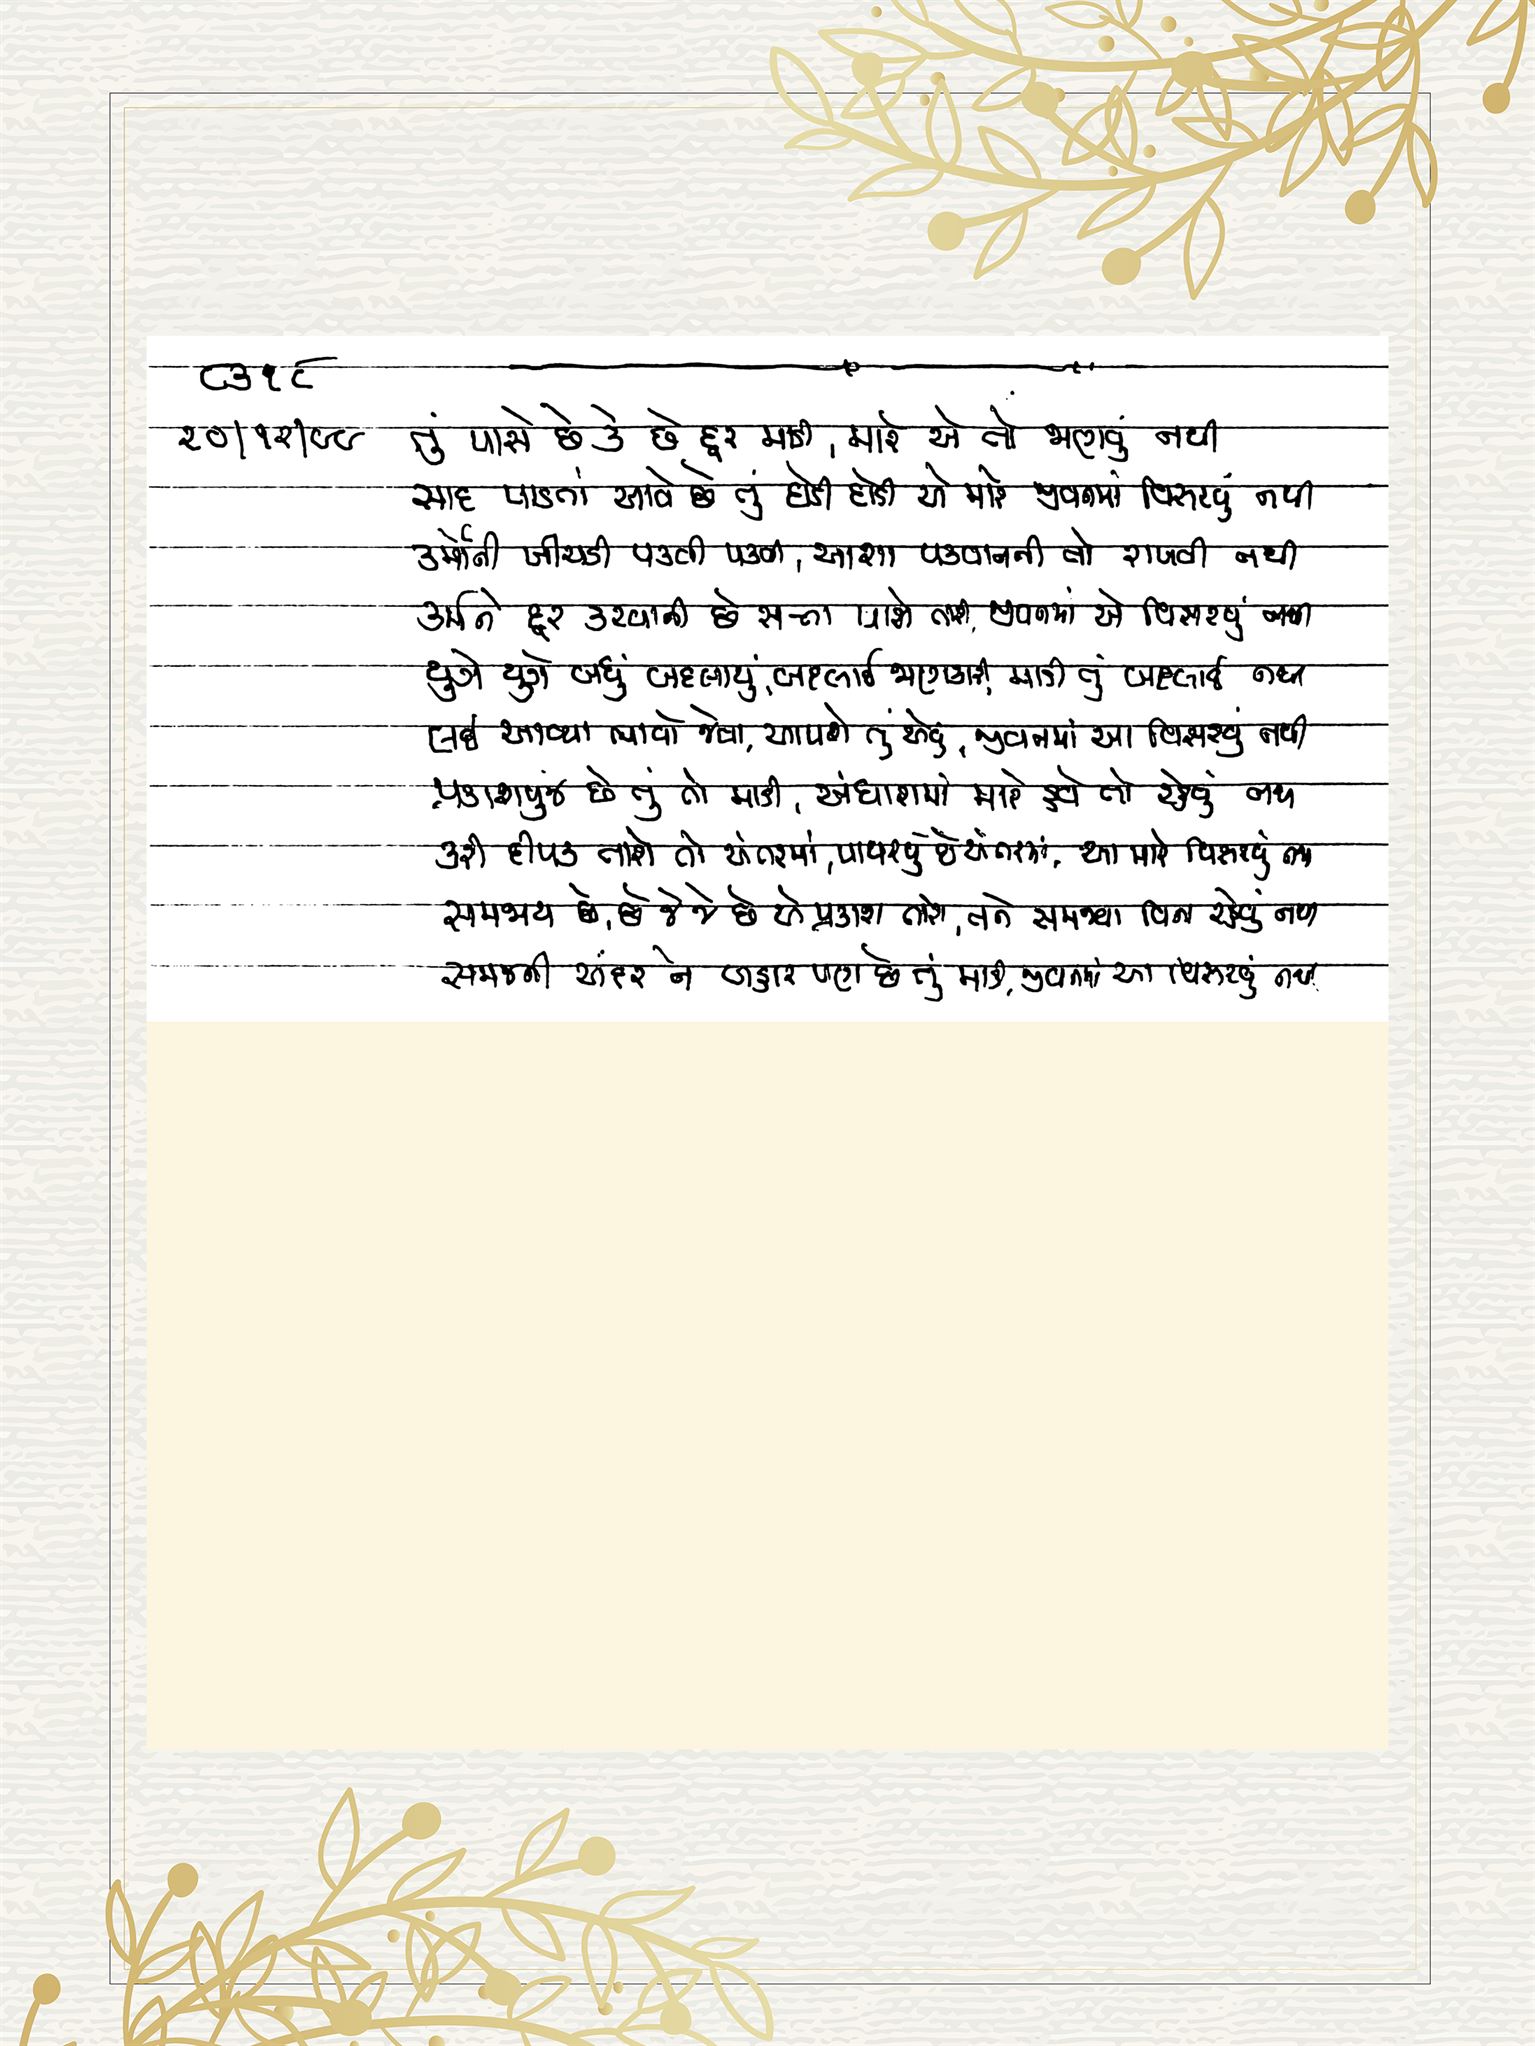 ૮૩૧૮
૨૦/૧૨/૯૯ તું પાસે છે કે છે દૂર માડી, મારે એ તો જાણવું નથી
સાદ પાડતાં આવે છે તું દોડી દોડી એ મારે જીવનમાં વિસરવું નથી
કર્મોની ખીચડી પકવી પકવી, આશા પકવાનની તો રાખવી નથી
કર્મને દૂર કરવાની છે સત્તા પાસે તારી, જીવનમાં એ વિસરવું નથી
યુગે યુગે બધું બદલાયું, બદલાઈ માડી તું બદલાઈ નથી
લઈ આવ્યા ભાવો જેવા, આપશે તું એવું, જીવનમાં આ વિસરવું નથી
પ્રકાશપુંજ છે તું તો માડી, અંધારામાં મારે હવે તો રહેવું નથી
કરી દીપક તારો તો અંતરમાં, પાથરવું છે અંતરમાં, આ મારે વિસરવું નથી
સમજાય છે, છે જે જે છે એ પ્રકાશ તારો, તને સમજ્યા વિના રહેવું નથી
સમજની અંદર ને બહાર પણ છે તું માડી, જીવનમાં આ વિસરવું નથી